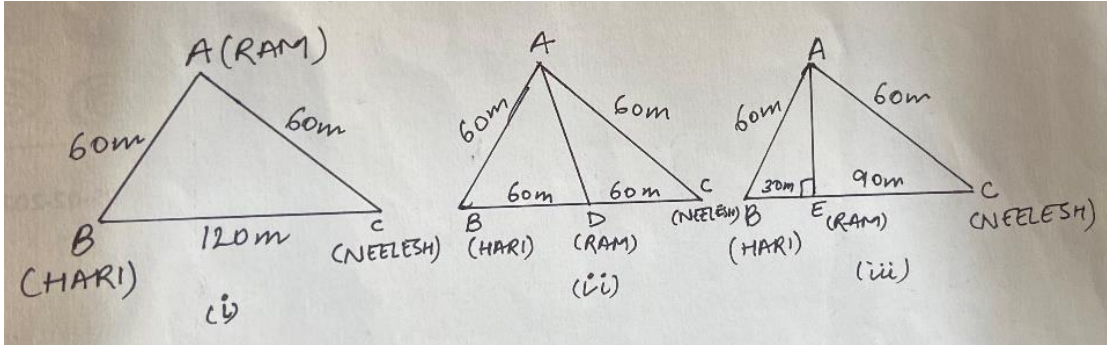 A (RAM)
60m
60m
B
120m
C
(HARI)
(NEELESH)
(i)
A
60m
60m
60m
60m
B
D
C
(HARI)
(RAM)
(NEELESH)
(ii)
A
60m
60m
30m
90m
B
E
C
(HARI)
(RAM)
(NEELESH)
(iii)